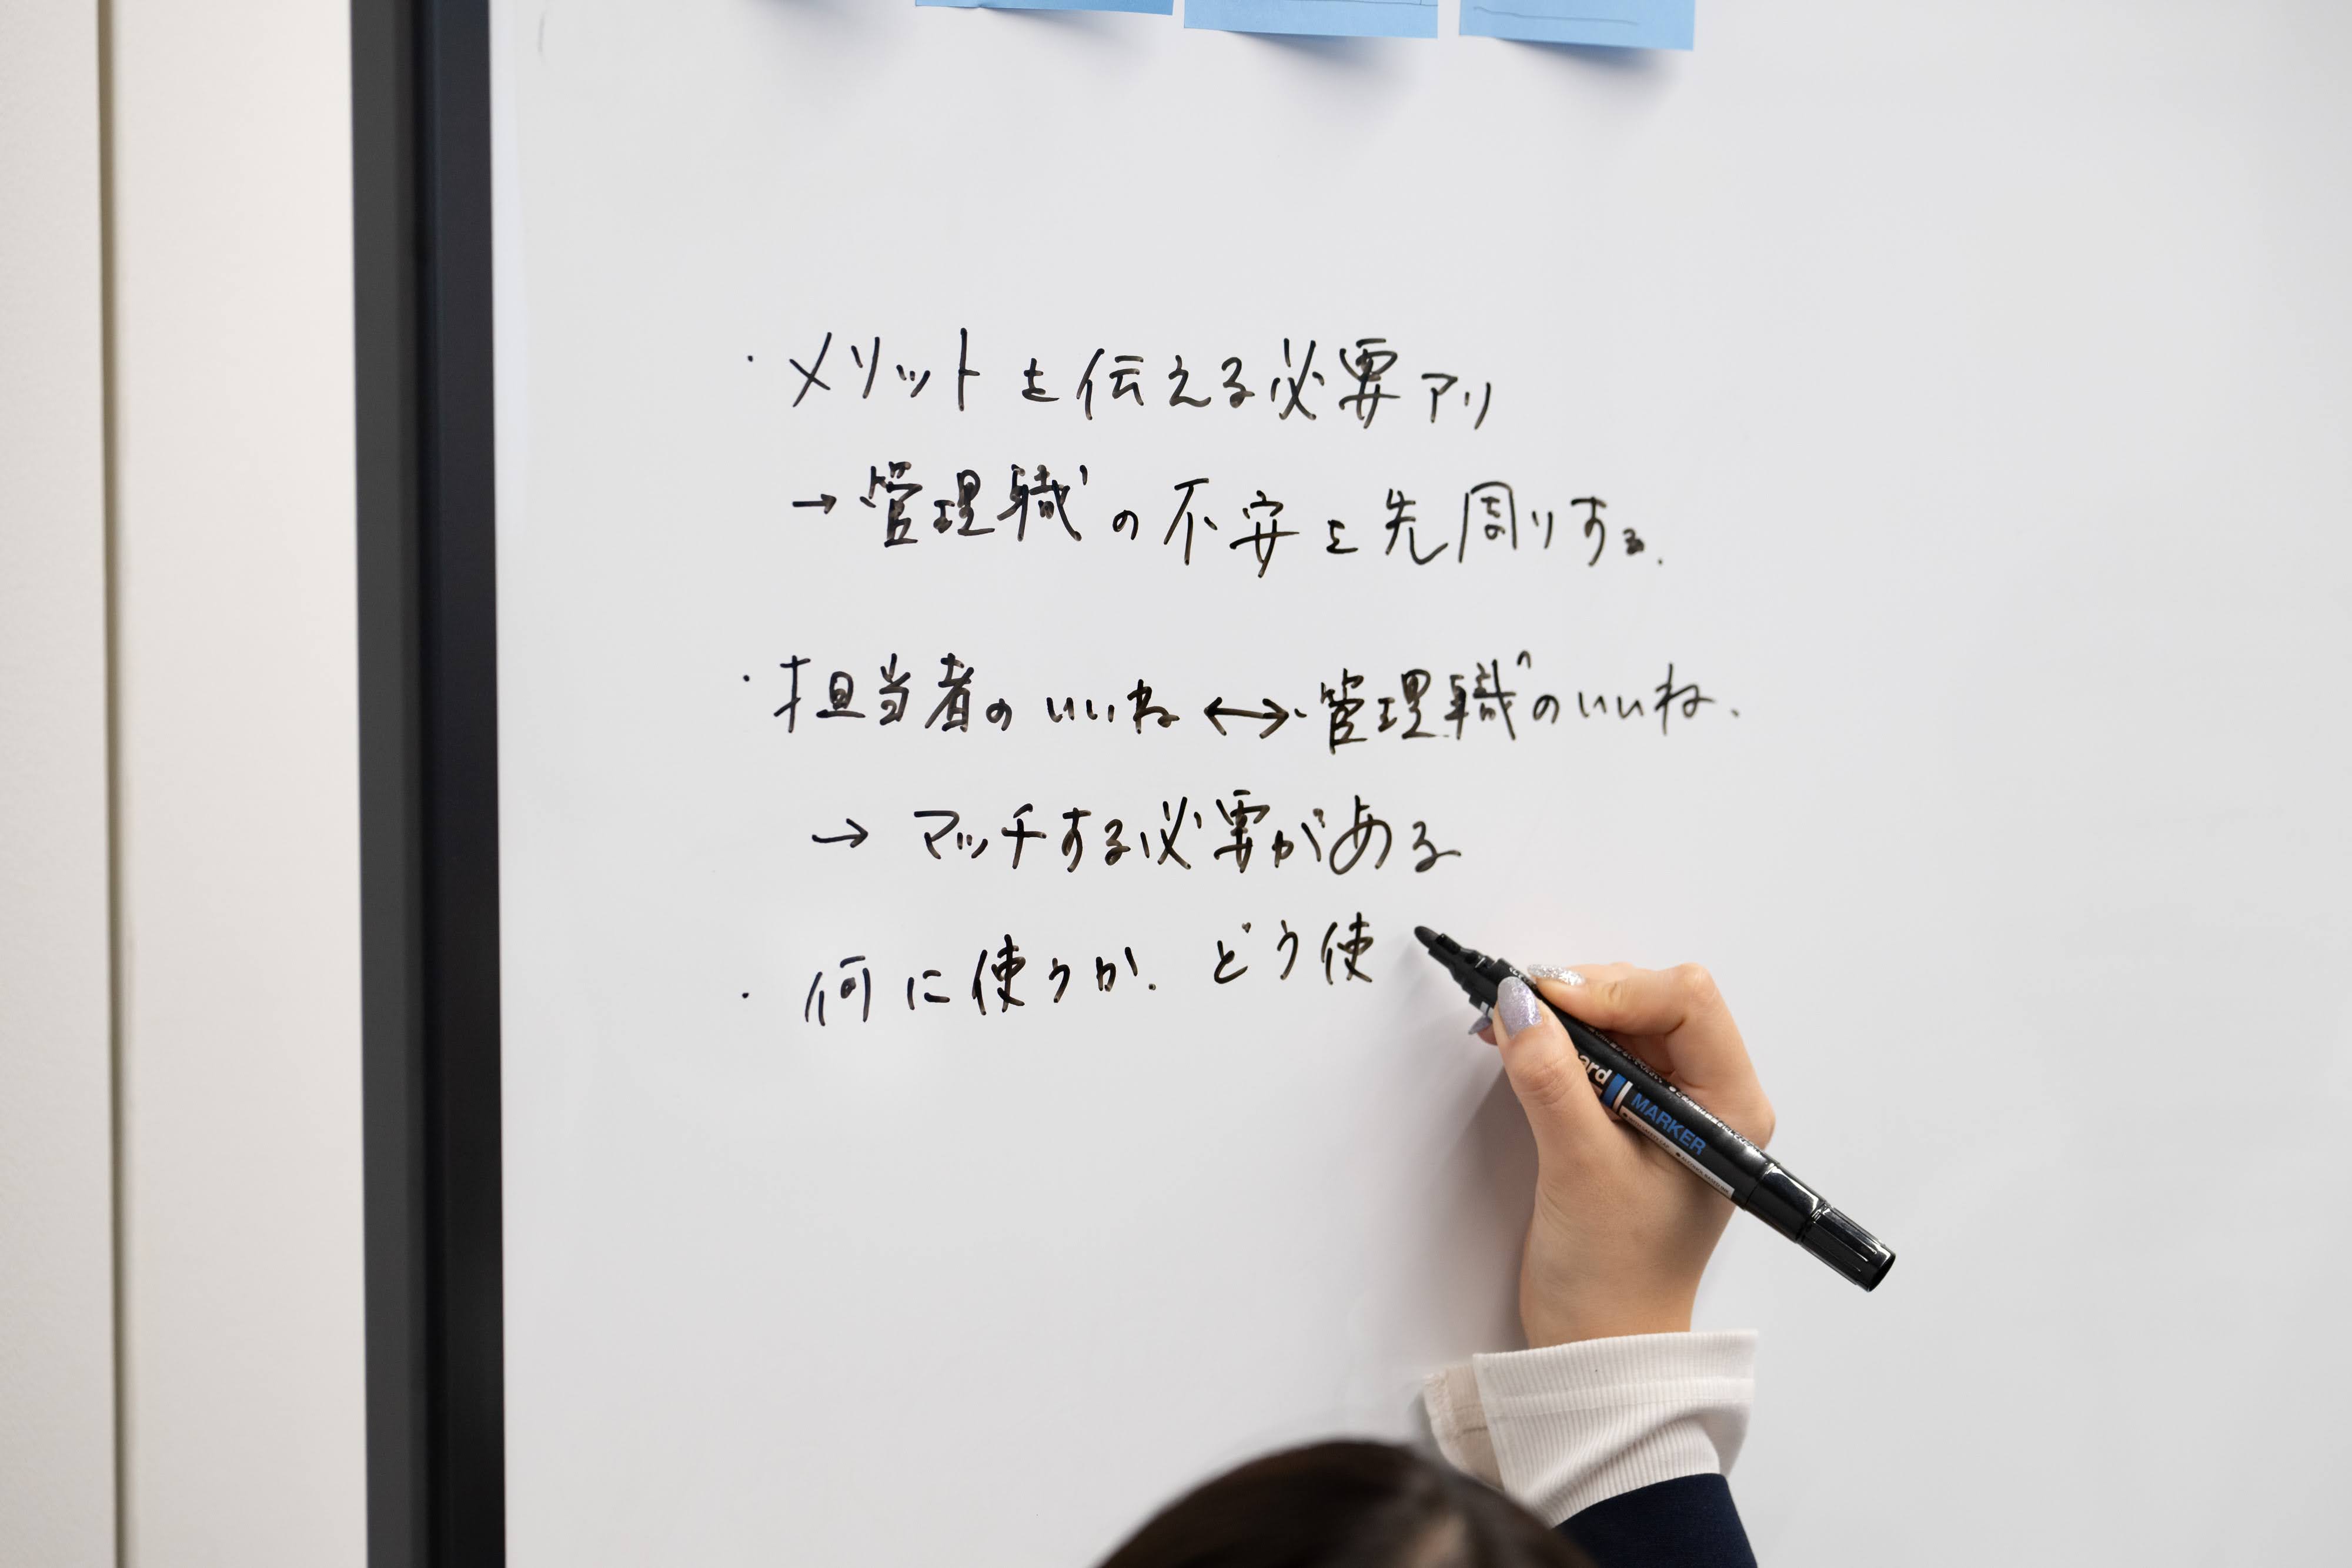 ・メリットを伝える必要アリ
→管理職の不安を先周りする.
・担当者のいいね ↔ 管理職のいいね.
→ マッチする必要がある
・何に使うか. どう使
ard MARKER